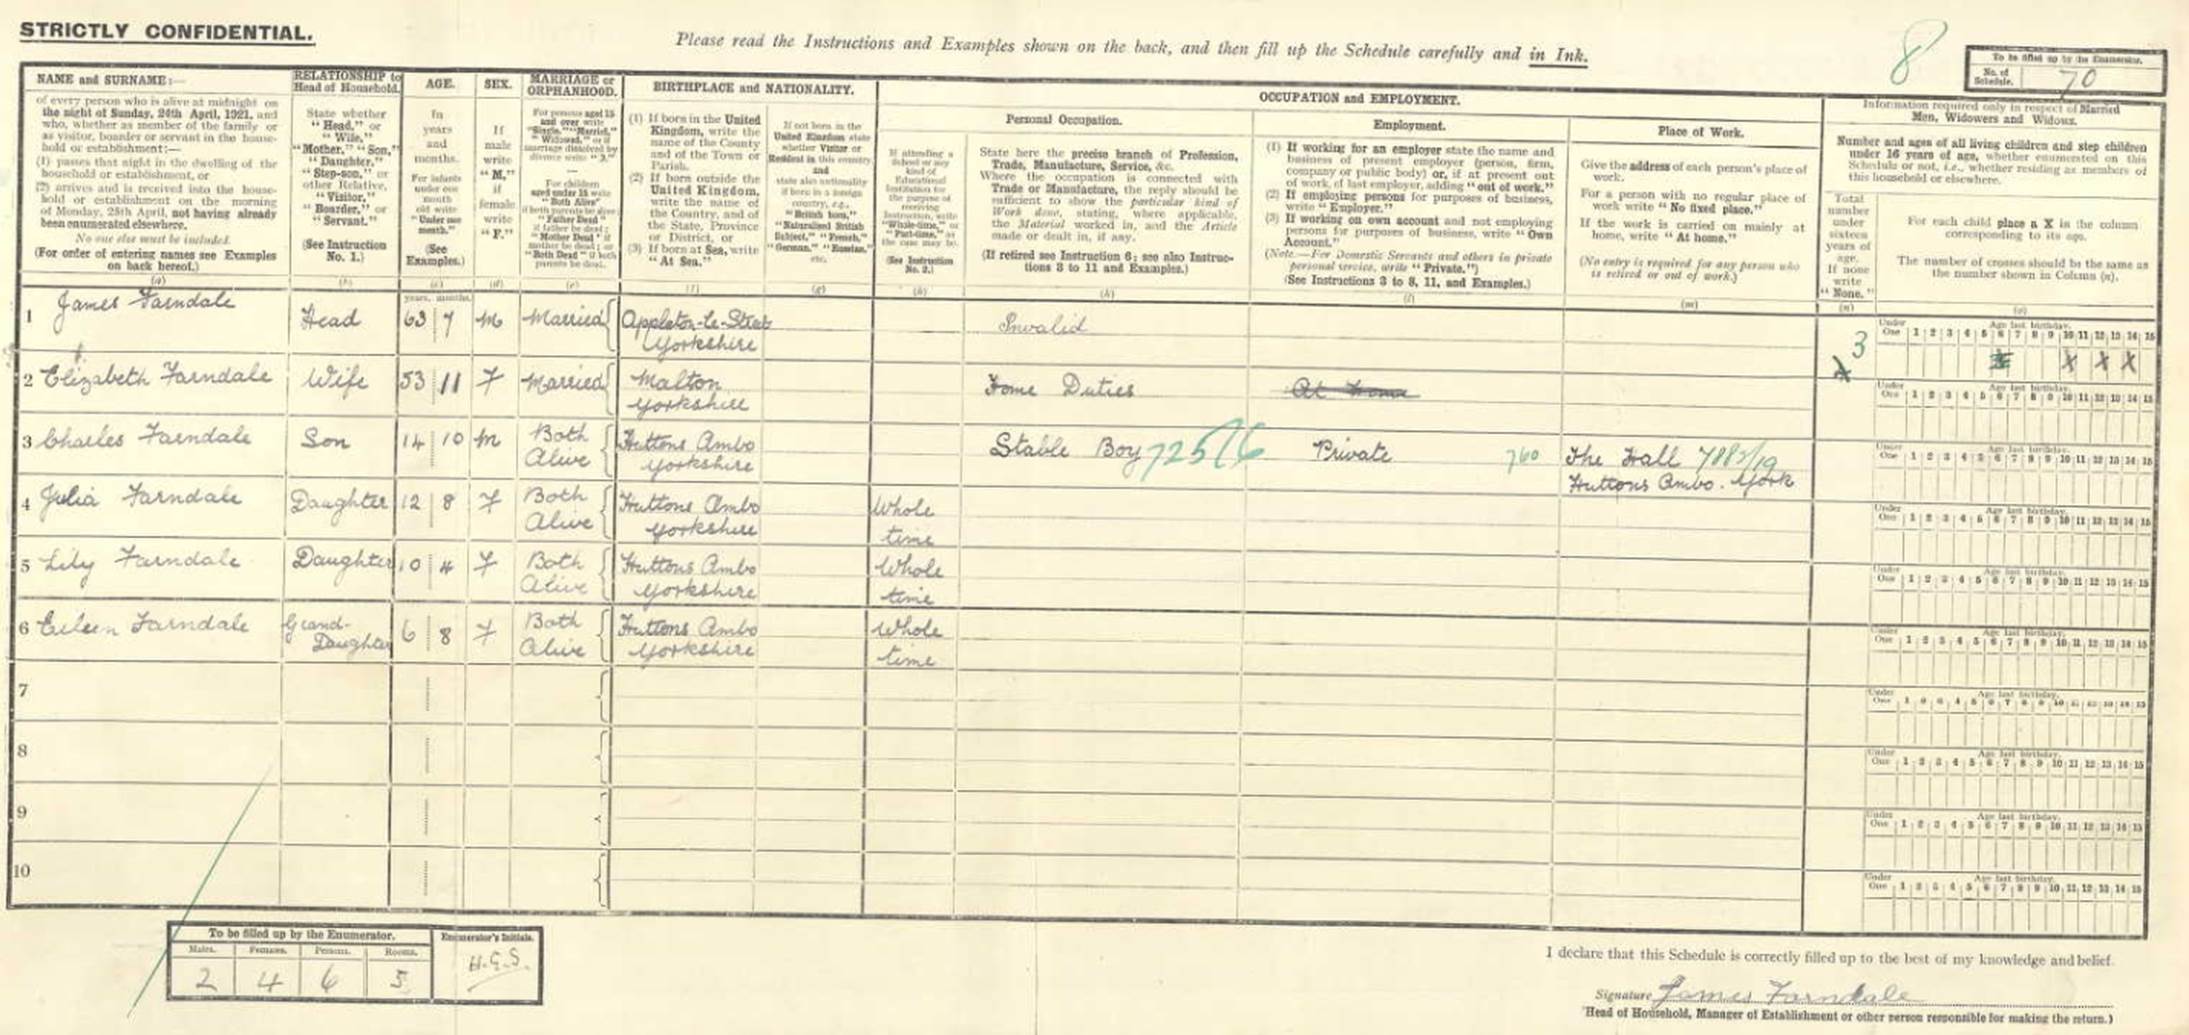 STRICTLY CONFIDENTIAL.
Please read the Instructions and Examples shown on the back, and then fill up the Schedule carefully and in Ink.
8
To be filled up by the Enumerator.
No. of Schedule. 70
NAME and SURNAME:—
of every person who is alive at midnight on
the night of Sunday, 24th April, 1921, and
who, whether as member of the family or
as visitor, boarder or servant in the house-
hold or establishment:—
(1) passes that night in the dwelling of the
household or establishment, or
(2) arrives and is received into the house-
hold or establishment on the morning
of Monday, 25th April, not having already
been enumerated elsewhere.
No one else must be included.
(For order of entering names see Examples
on back hereof.)
(a)
RELATIONSHIP to
Head of Household.
State whether
"Head," or
"Wife,"
"Mother," "Son,"
"Daughter,"
"Step-son," or
other Relative,
"Visitor,"
"Boarder," or
"Servant."
(See Instruction
No. 1.)
(b)
AGE.
In
years
and
months.
For infants
under one
month
old write
"Under one
month."
(See
Examples.)
(c)
years. months.
SEX.
If
male
write
"M,"
if
female
write
"F."
(d)
MARRIAGE or
ORPHANHOOD.
For persons aged 15
and over write
"Single," "Married,"
"Widowed," or if
marriage dissolved by
divorce write "D."
For children
aged under 15 write
"Both Alive"
if both parents be alive
"Father Dead"
if father be dead;
"Mother Dead" if
mother be dead; or
"Both Dead" if both
parents be dead.
(e)
BIRTHPLACE and NATIONALITY.
(1) If born in the United
Kingdom, write the
name of the County
and of the Town or
Parish.
(2) If born outside the
United Kingdom,
write the name of
the Country, and of
the State, Province
or District, or
(3) If born at Sea, write
"At Sea."
(f)
If not born in the
United Kingdom state
whether Visitor or
Resident in this country,
and
state also nationality
if born in a foreign
country, e.g.,
"British born,"
"Naturalised British
Subject," "French,"
"German," "Russian,"
etc.
(g)
If attending a
School or any
kind of
Educational
Institution for
the purpose of
receiving
Instruction, write
"Whole-time," or
"Part-time," as
the case may be.
(See Instruction
No. 2.)
(h)
OCCUPATION and EMPLOYMENT.
Personal Occupation.
State here the precise branch of Profession,
Trade, Manufacture, Service, &c.
Where the occupation is connected with
Trade or Manufacture, the reply should be
sufficient to show the particular kind of
Work done, stating, where applicable,
the Material worked in, and the Article
made or dealt in, if any.
(If retired see Instruction 6; see also Instruc-
tions 3 to 11 and Examples.)
(k)
Employment.
(1) If working for an employer state the name and
business of present employer (person, firm,
company or public body) or, if at present out
of work, of last employer, adding "out of work."
(2) If employing persons for purposes of business,
write "Employer."
(3) If working on own account and not employing
persons for purposes of business, write "Own
Account."
(Note.—For Domestic Servants and others in private
personal service, write "Private.")
(See Instructions 3 to 8, 11, and Examples.)
(l)
Place of Work.
Give the address of each person's place of
work.
For a person with no regular place of
work write "No fixed place."
If the work is carried on mainly at
home, write "At home."
(No entry is required for any person who
is retired or out of work.)
(m)
Information required only in respect of Married
Men, Widowers and Widows.
Number and ages of all living children and step children
under 16 years of age, whether enumerated on this
Schedule or not, i.e., whether residing as members of
this household or elsewhere.
Total
number
under
sixteen
years of
age.
If none
write
"None."
(n)
For each child place a X in the column
corresponding to its age.
The number of crosses should be the same as
the number shown in Column (n).
(o)
1 James Farndale Head 63 7 M Married Appleton-le-Street Yorkshire Invalid 3 X X X
2 Elizabeth Farndale Wife 53 11 F Married Malton Yorkshire Home Duties At Home
3 Charles Farndale Son 14 10 M Both Alive Huttons Ambo Yorkshire Stable Boy 725/6 Private 760 The Hall Huttons Ambo. York
4 Julia Farndale Daughter 12 8 F Both Alive Huttons Ambo Yorkshire Whole time
5 Lily Farndale Daughter 10 4 F Both Alive Huttons Ambo Yorkshire Whole time
6 Eileen Farndale Grand-Daughter 6 8 F Both Alive Huttons Ambo Yorkshire Whole time
7
8
9
10
Under One Age last birthday. 1 2 3 4 5 6 7 8 9 10 11 12 13 14 15
To be filled up by the Enumerator.
Males. Females. Persons. Rooms.
2 4 6 5
Enumerator's Initials.
H.G.S.
I declare that this Schedule is correctly filled up to the best of my knowledge and belief.
Signature James Farndale
Head of Household, Manager of Establishment or other person responsible for making the return.)